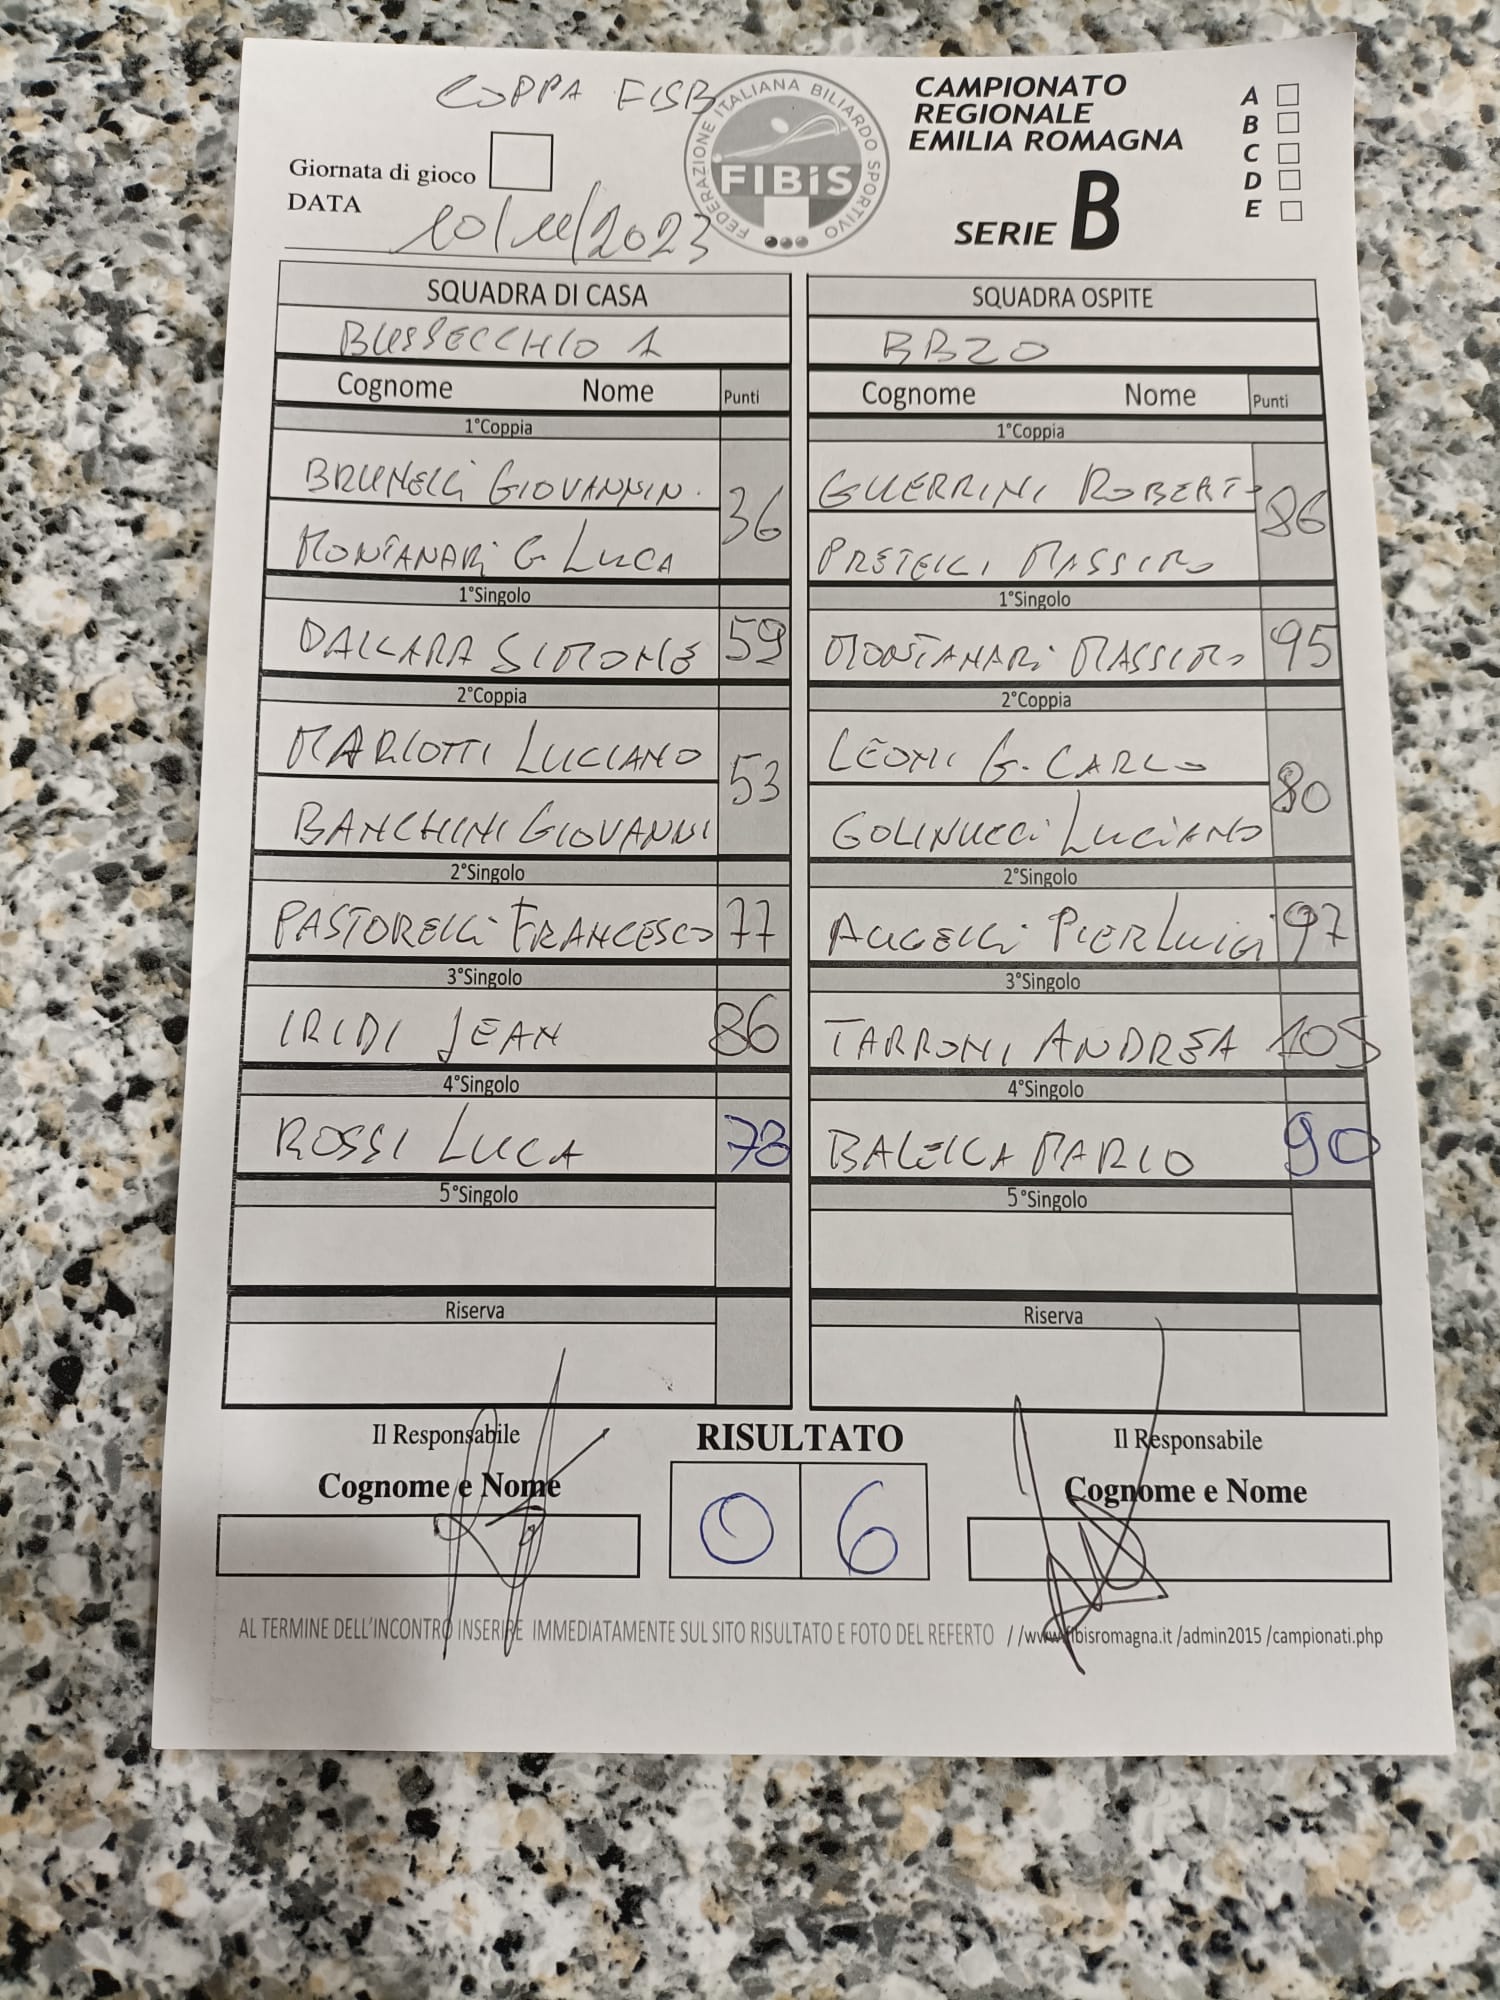 COPPA FISB
FEDERAZIONE ITALIANA BILIARDO SPORTIVO
FIBiS
CAMPIONATO
REGIONALE
EMILIA ROMAGNA
SERIE B
A
B
C
D
E
Giornata di gioco
DATA 10/11/2023
SQUADRA DI CASA SQUADRA OSPITE
BUSSECCHIO 1 BBZO
Cognome Nome Punti Cognome Nome Punti
1°Coppia 1°Coppia
BRUNELLi GIOVANNIN. 36 GUERRINI ROBERTO 86
MONTANARi G. LUCA PRETELLI MASSIMO
1°Singolo 1°Singolo
DALLARA SIMONE 59 MONTANARi MASSIMO 95
2°Coppia 2°Coppia
MARIOTTI LUCIANO 53 LEONI G. CARLO 80
BANCHINI GIOVANNI GOLINUCCi LUCiANO
2°Singolo 2°Singolo
PASTORELLi FRANCESCO 77 PIERLUIGI 97
3°Singolo 3°Singolo
IRIDI JEAN 86 TARRONI ANDREA 105
4°Singolo 4°Singolo
ROSSI LUCA 78 BALELLA MARIO 90
5°Singolo 5°Singolo
Riserva Riserva
Il Responsabile RISULTATO Il Responsabile
Cognome e Nome 0 6 Cognome e Nome
AL TERMINE DELL'INCONTRO INSERIRE IMMEDIATAMENTE SUL SITO RISULTATO E FOTO DEL REFERTO //www.fibisromagna.it /admin2015 /campionati.php